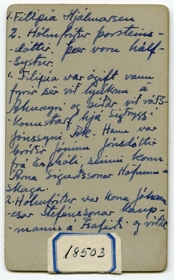 1. Filipia Hjálmarsen
2. Hólmfríður Þorsteins-
dóttir. Þær voru hálf-
systur.
1. Filipia var ógift vann
fyrir sér við hjúkrun á
Akureyri og síðar við ráðs-
konustarf hjá Sigtryggi
Jónssyni Rvk. Hann var
bróðir Jónínu Jónsdóttur
frá seinni kona
Árna Sigurðssonar Höfnum á
Skaga.
2. Hólmfríður var kona Jóhann-
esar Stefánssonar kaup-
manns á og síðar
18503